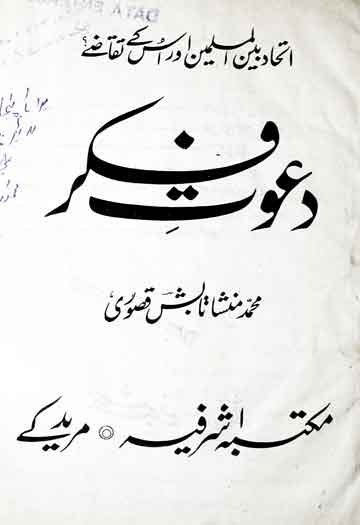 اتحاد بین المسلمین اور اس کے تقاضے؟
دعوتِ فکر
محمد منشا تابش قصوری
مکتبہ اشرفیہ ۞ مریدکے